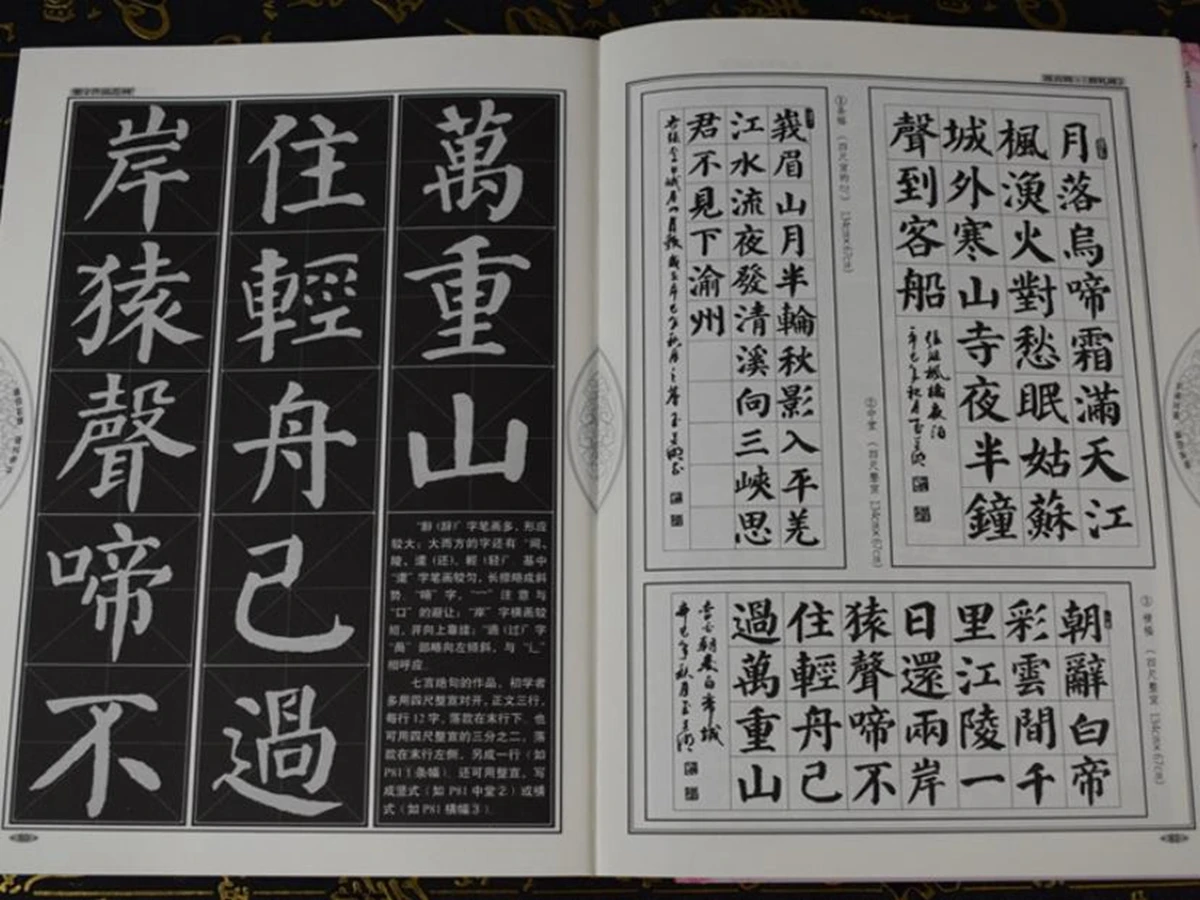 岸猿聲啼不
住輕舟已過
萬重山
“辭(辞)”字笔画多，形应
较大；大而方的字还有“间、
陵、還(还)、輕(轻)”。其中
“還”字笔画较匀，长捺略成斜
势。“啼”字，“冖”注意与
“口”的避让；“岸”字横画较
短，并向上靠拢；“過(过)”字
“咼”部略向左倾斜，与“辶”
相呼应。
七言绝句的作品，初学者
多用四尺整宣对开，正文三行，
每行12字，落款在末行下。也
可用四尺整宣的三分之二，落
款在末行左侧，另成一行（如
P81 1条幅）。还可用整宣，写
成竖式（如P81中堂②）或横
式（如P81横幅③）。
月落烏啼霜滿天江
楓漁火對愁眠姑蘇
城外寒山寺夜半鐘
聲到客船
張繼楓橋夜泊
辛巳年秋月
②中堂（四尺整宣 134cm×67cm）
①条幅
峩眉山月半輪秋影入平羌
江水流夜發清溪向三峽思
君不見下渝州
朝辭白帝
彩雲間千
里江陵一
日還兩岸
猿聲啼不
住輕舟已
過萬重山
李白朝發白帝城
辛巳年秋月
③横幅（四尺整宣 134cm×67cm）